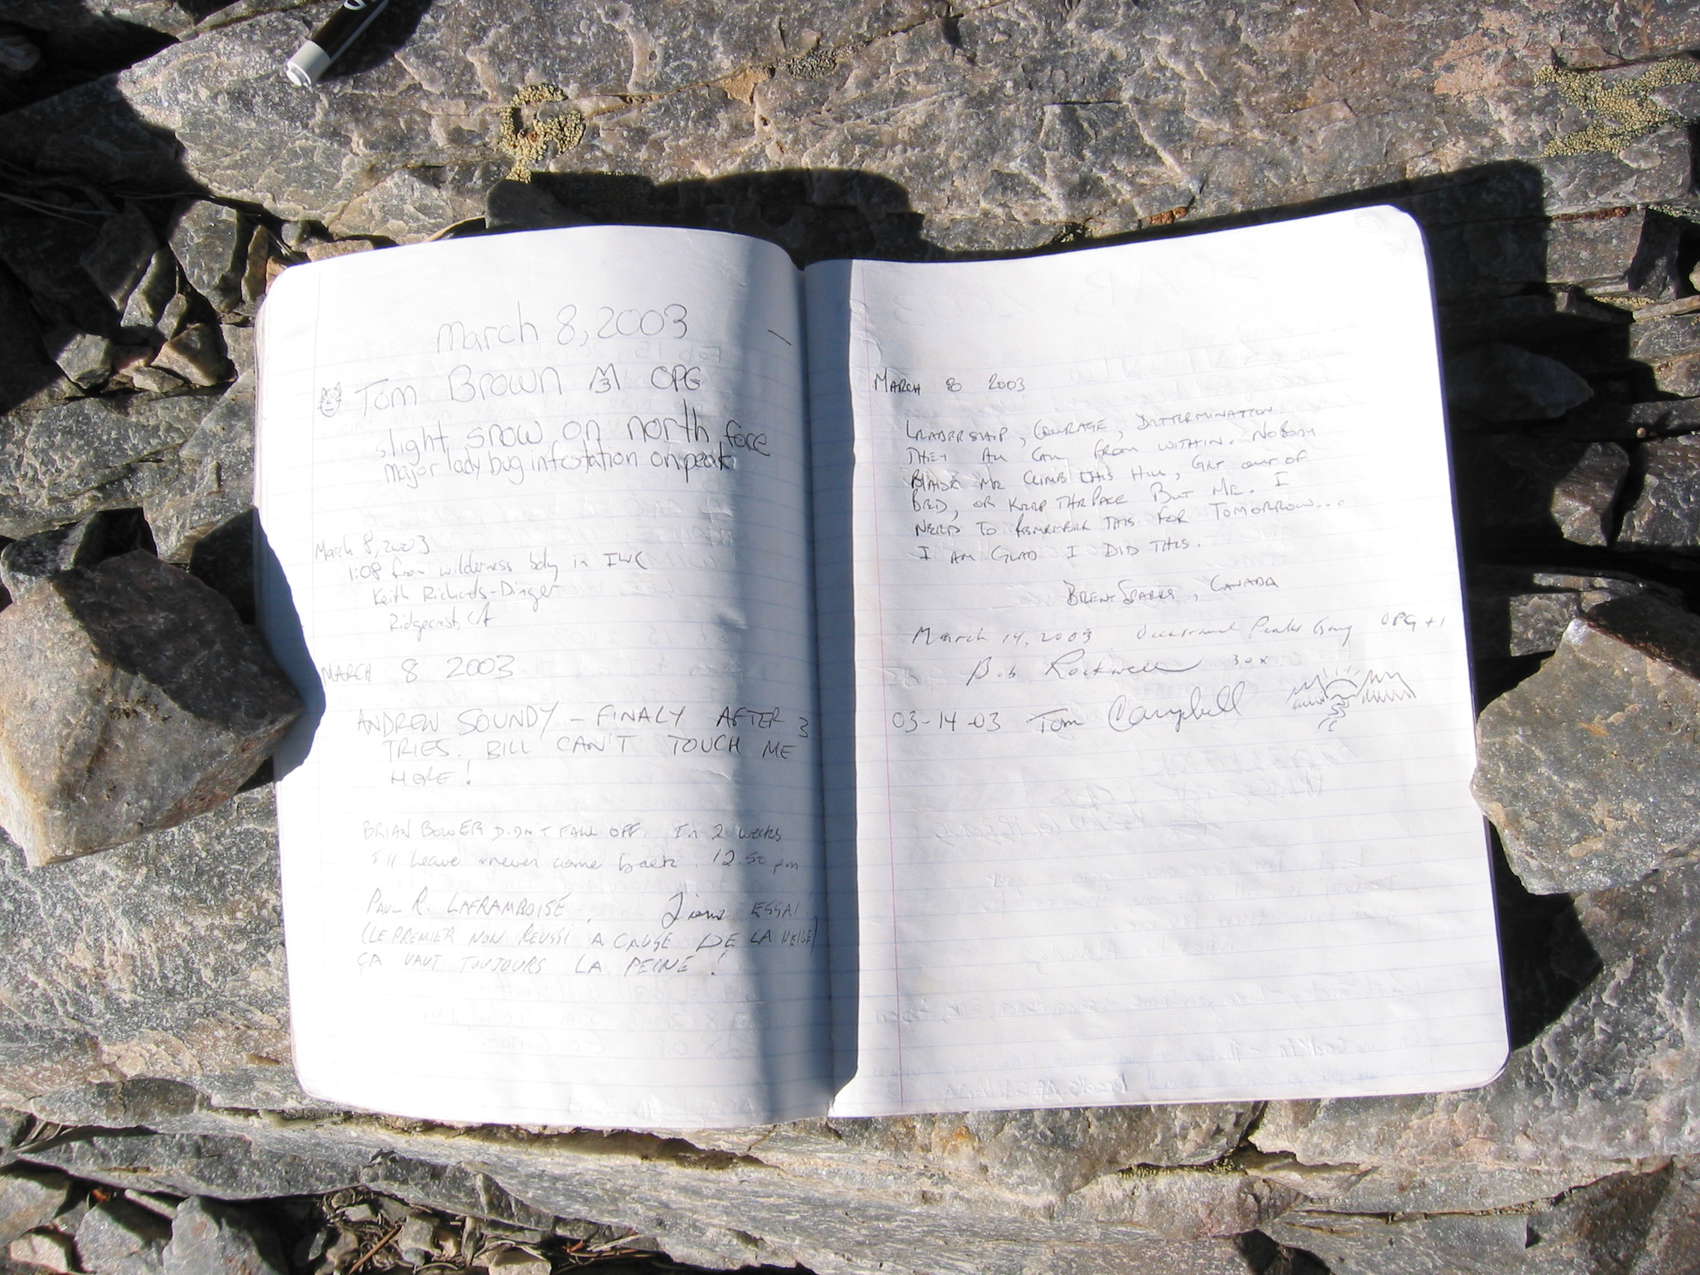 March 8, 2003
Tom Brown OPG
slight snow on north face
major lady bug infestation on peak
March 8, 2003
1:08 from wilderness bdry in IWC
Keith Richards-Dinger
Ridgecrest, CA
MARCH 8 2003
ANDREW SOUNDY - FINALY AFTER 3
TRIES. BILL CAN'T TOUCH ME
HERE!
BRIAN BOWER DIDN'T FALL OFF. In 2 weeks
I'll leave & never come back. 12:50 pm
PAUL R. LAFRAMBOISE, 2ième ESSAI
(LE PREMIER NON REUSSI A CAUSE DE LA
ÇA VAUT TOUJOURS LA PEINE!
MARCH 8 2003
LEADERSHIP, COURAGE, DETERMINATION
THEY ALL COME FROM WITHIN. NOBODY
MADE ME CLIMB THIS HILL, GET OUT OF
BED, OR KEEP THE PACE BUT ME. I
NEED TO REMEMBER THIS FOR TOMORROW...
I AM GLAD I DID THIS.
BRENT SPARKS, CANADA
March 14, 2003 Occasional Peaks Gang OPG +1
Bob Rockwell 30x
03-14-03 Tom Campbell